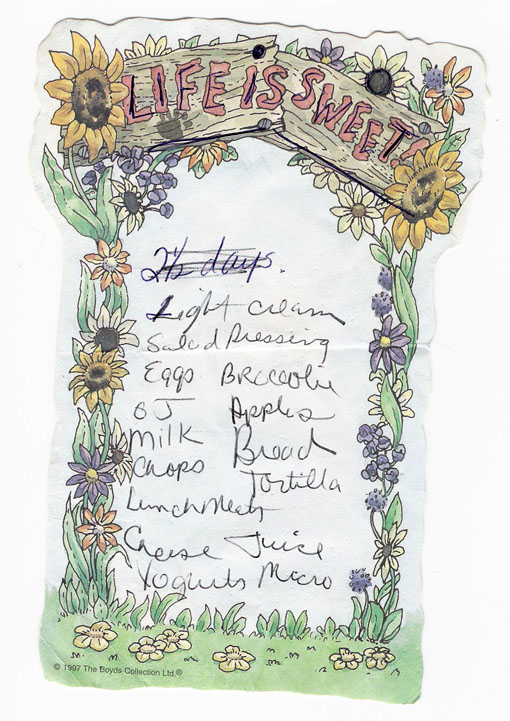 LIFE IS SWEET!
2½ days.
Light cream
Salad Dressing
Eggs Broccolie
OJ Apples
Milk Bread
Chops Tortilla
Lunchmeats
Cheese Juice
Yogurts Micro
© 1997 The Boyds Collection Ltd.®